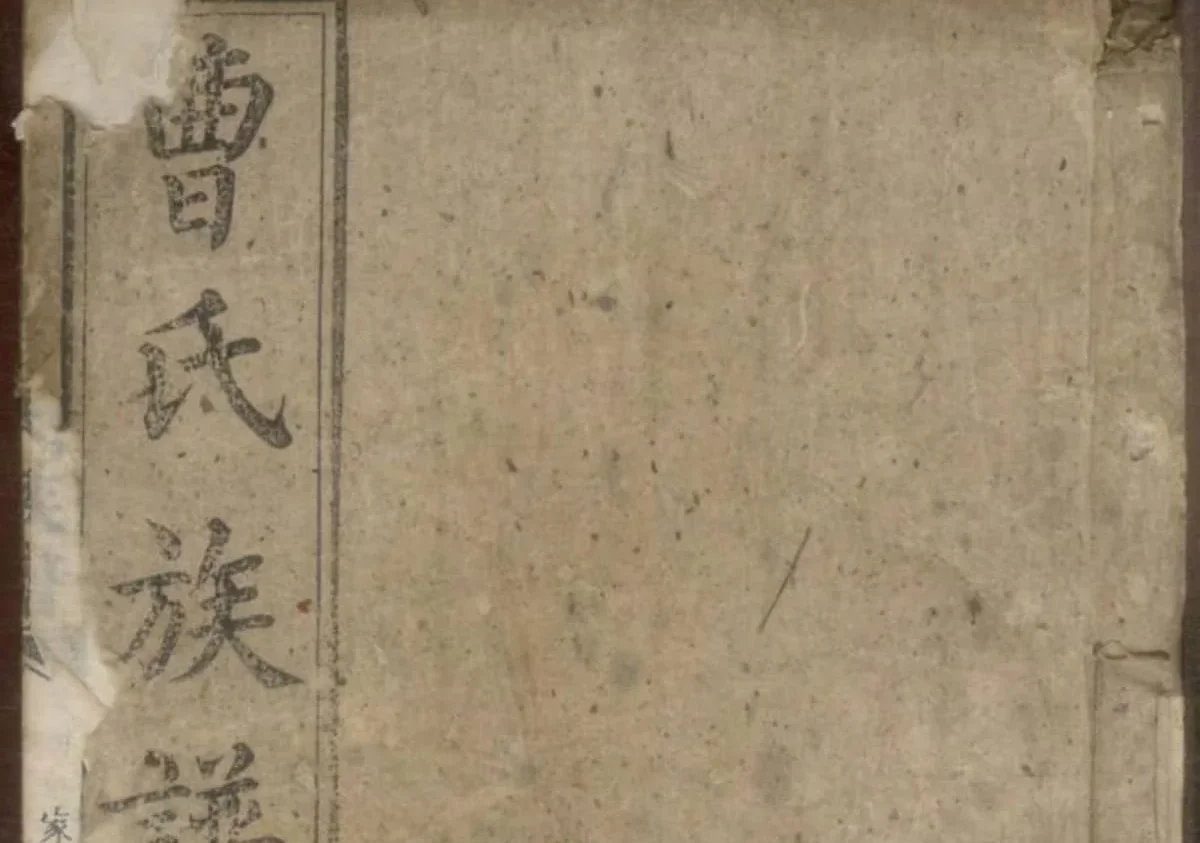 曹氏族譜
家